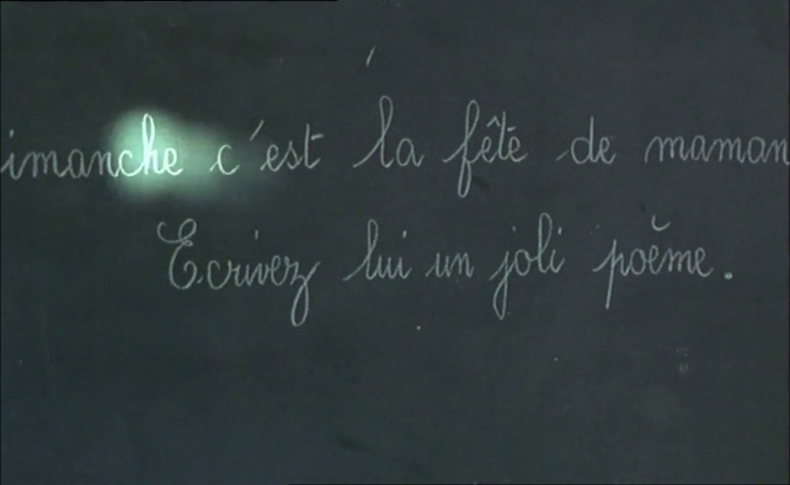 imanche c'est la fête de maman
Ecrivez lui un joli poème.